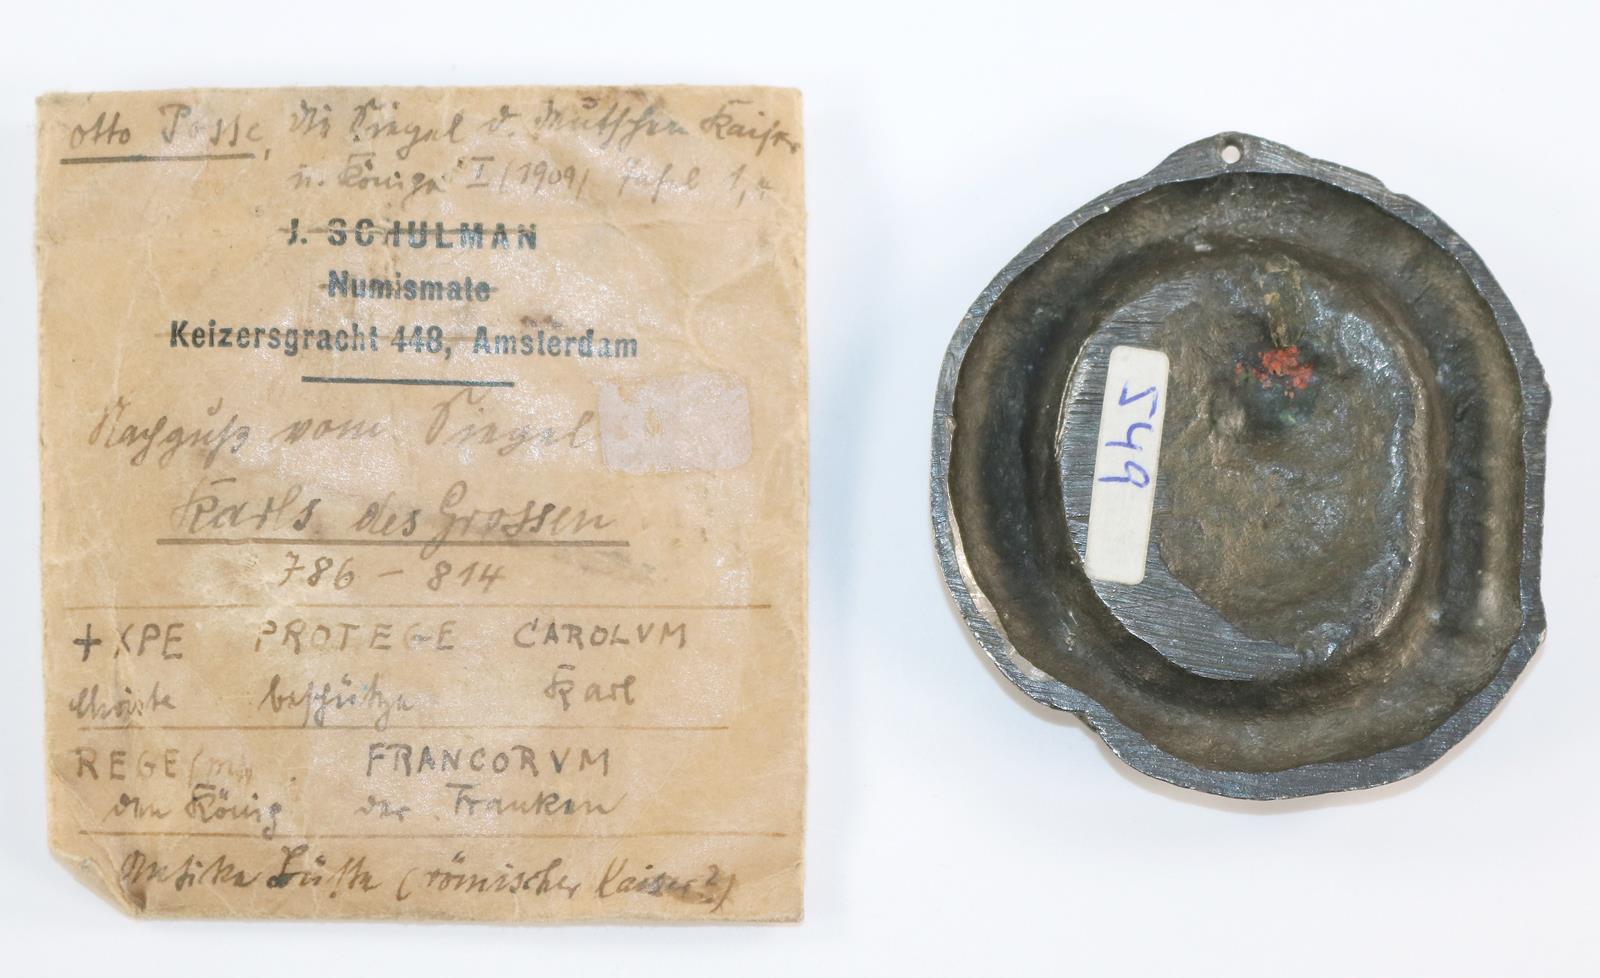 Otto Posse, die Siegel d. deutschen Kaiser
u. Könige I (1909) Tafel 1,
J. SCHULMAN
Numismate
Keizersgracht 448, Amsterdam
Nachguß vom Siegel
Karls des Grossen
786 - 814
+ XPE PROTEGE CAROLVM
Christe beschütze Karl
REGE(m) FRANCORVM
den König der Franken
Antike Büste (römischer Kaiser?)
549